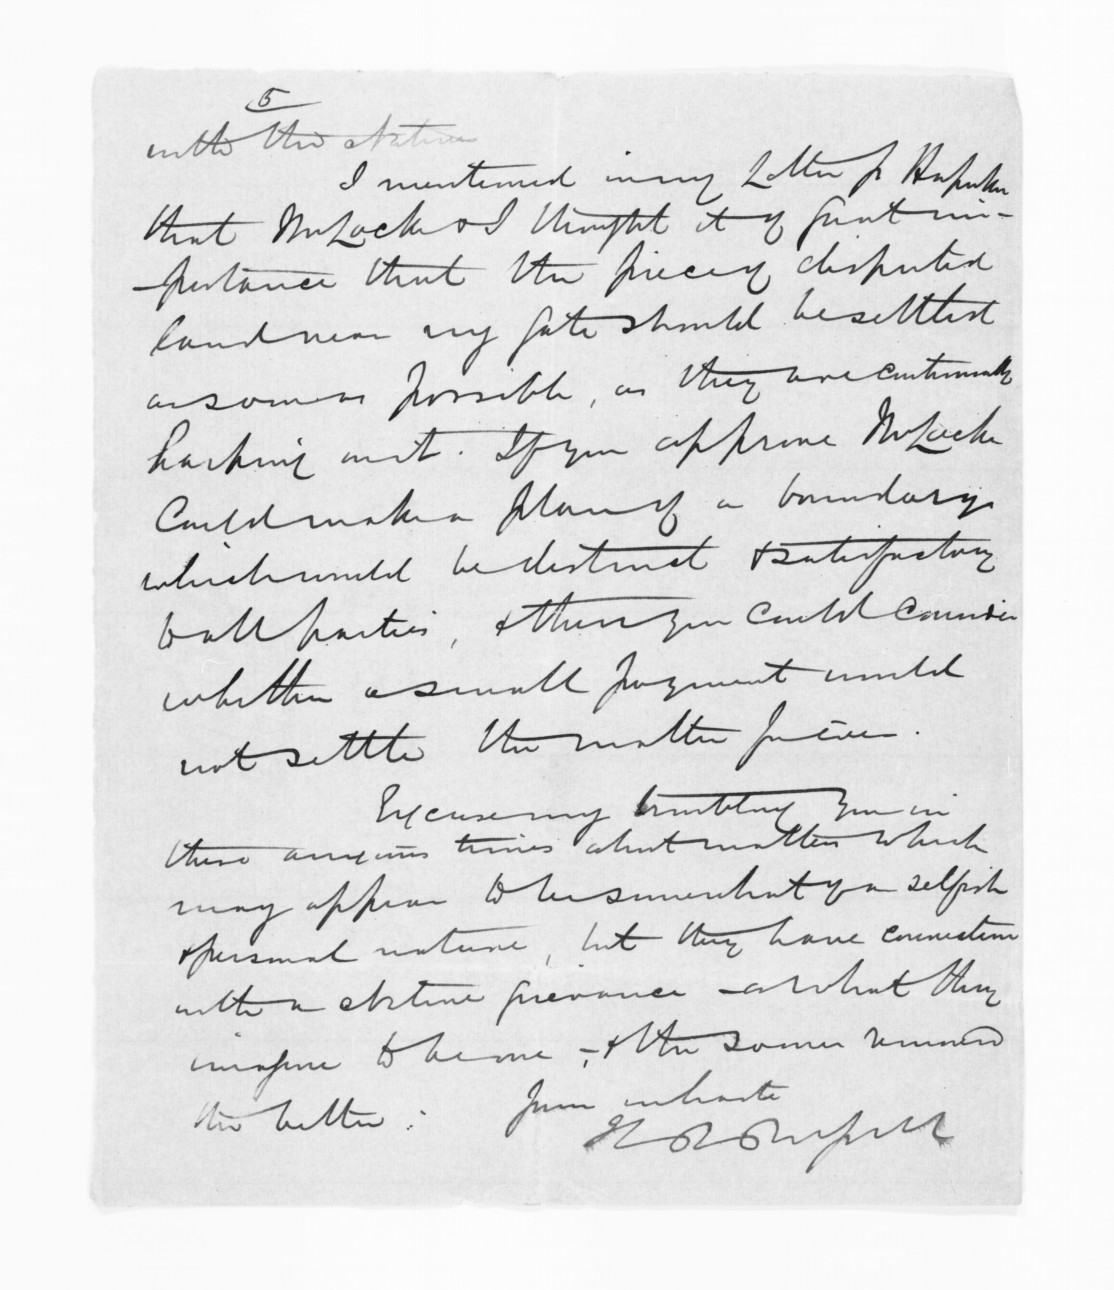 5
with the Natives
I mentioned in my Letter fr Hapuku
that Mr Locke & I thought it of great im-
-portance that the piece of disputed
land near my gate should be settled
as soon as possible, as they are continually
harping on it. If you approve Mr Locke
could make a plan of a boundary
which would be distinct & satisfactory
to all parties, & then you could consider
whether a small payment would
not settle the matter for ever.
Excuse my troubling you in
these anxious times about matters which
may appear to be somewhat of a selfish
& personal nature, but they have connection
with a Native grievance - or what they
imagine to be one, - & the sooner removed
the better:
Yours in haste
H R Russell